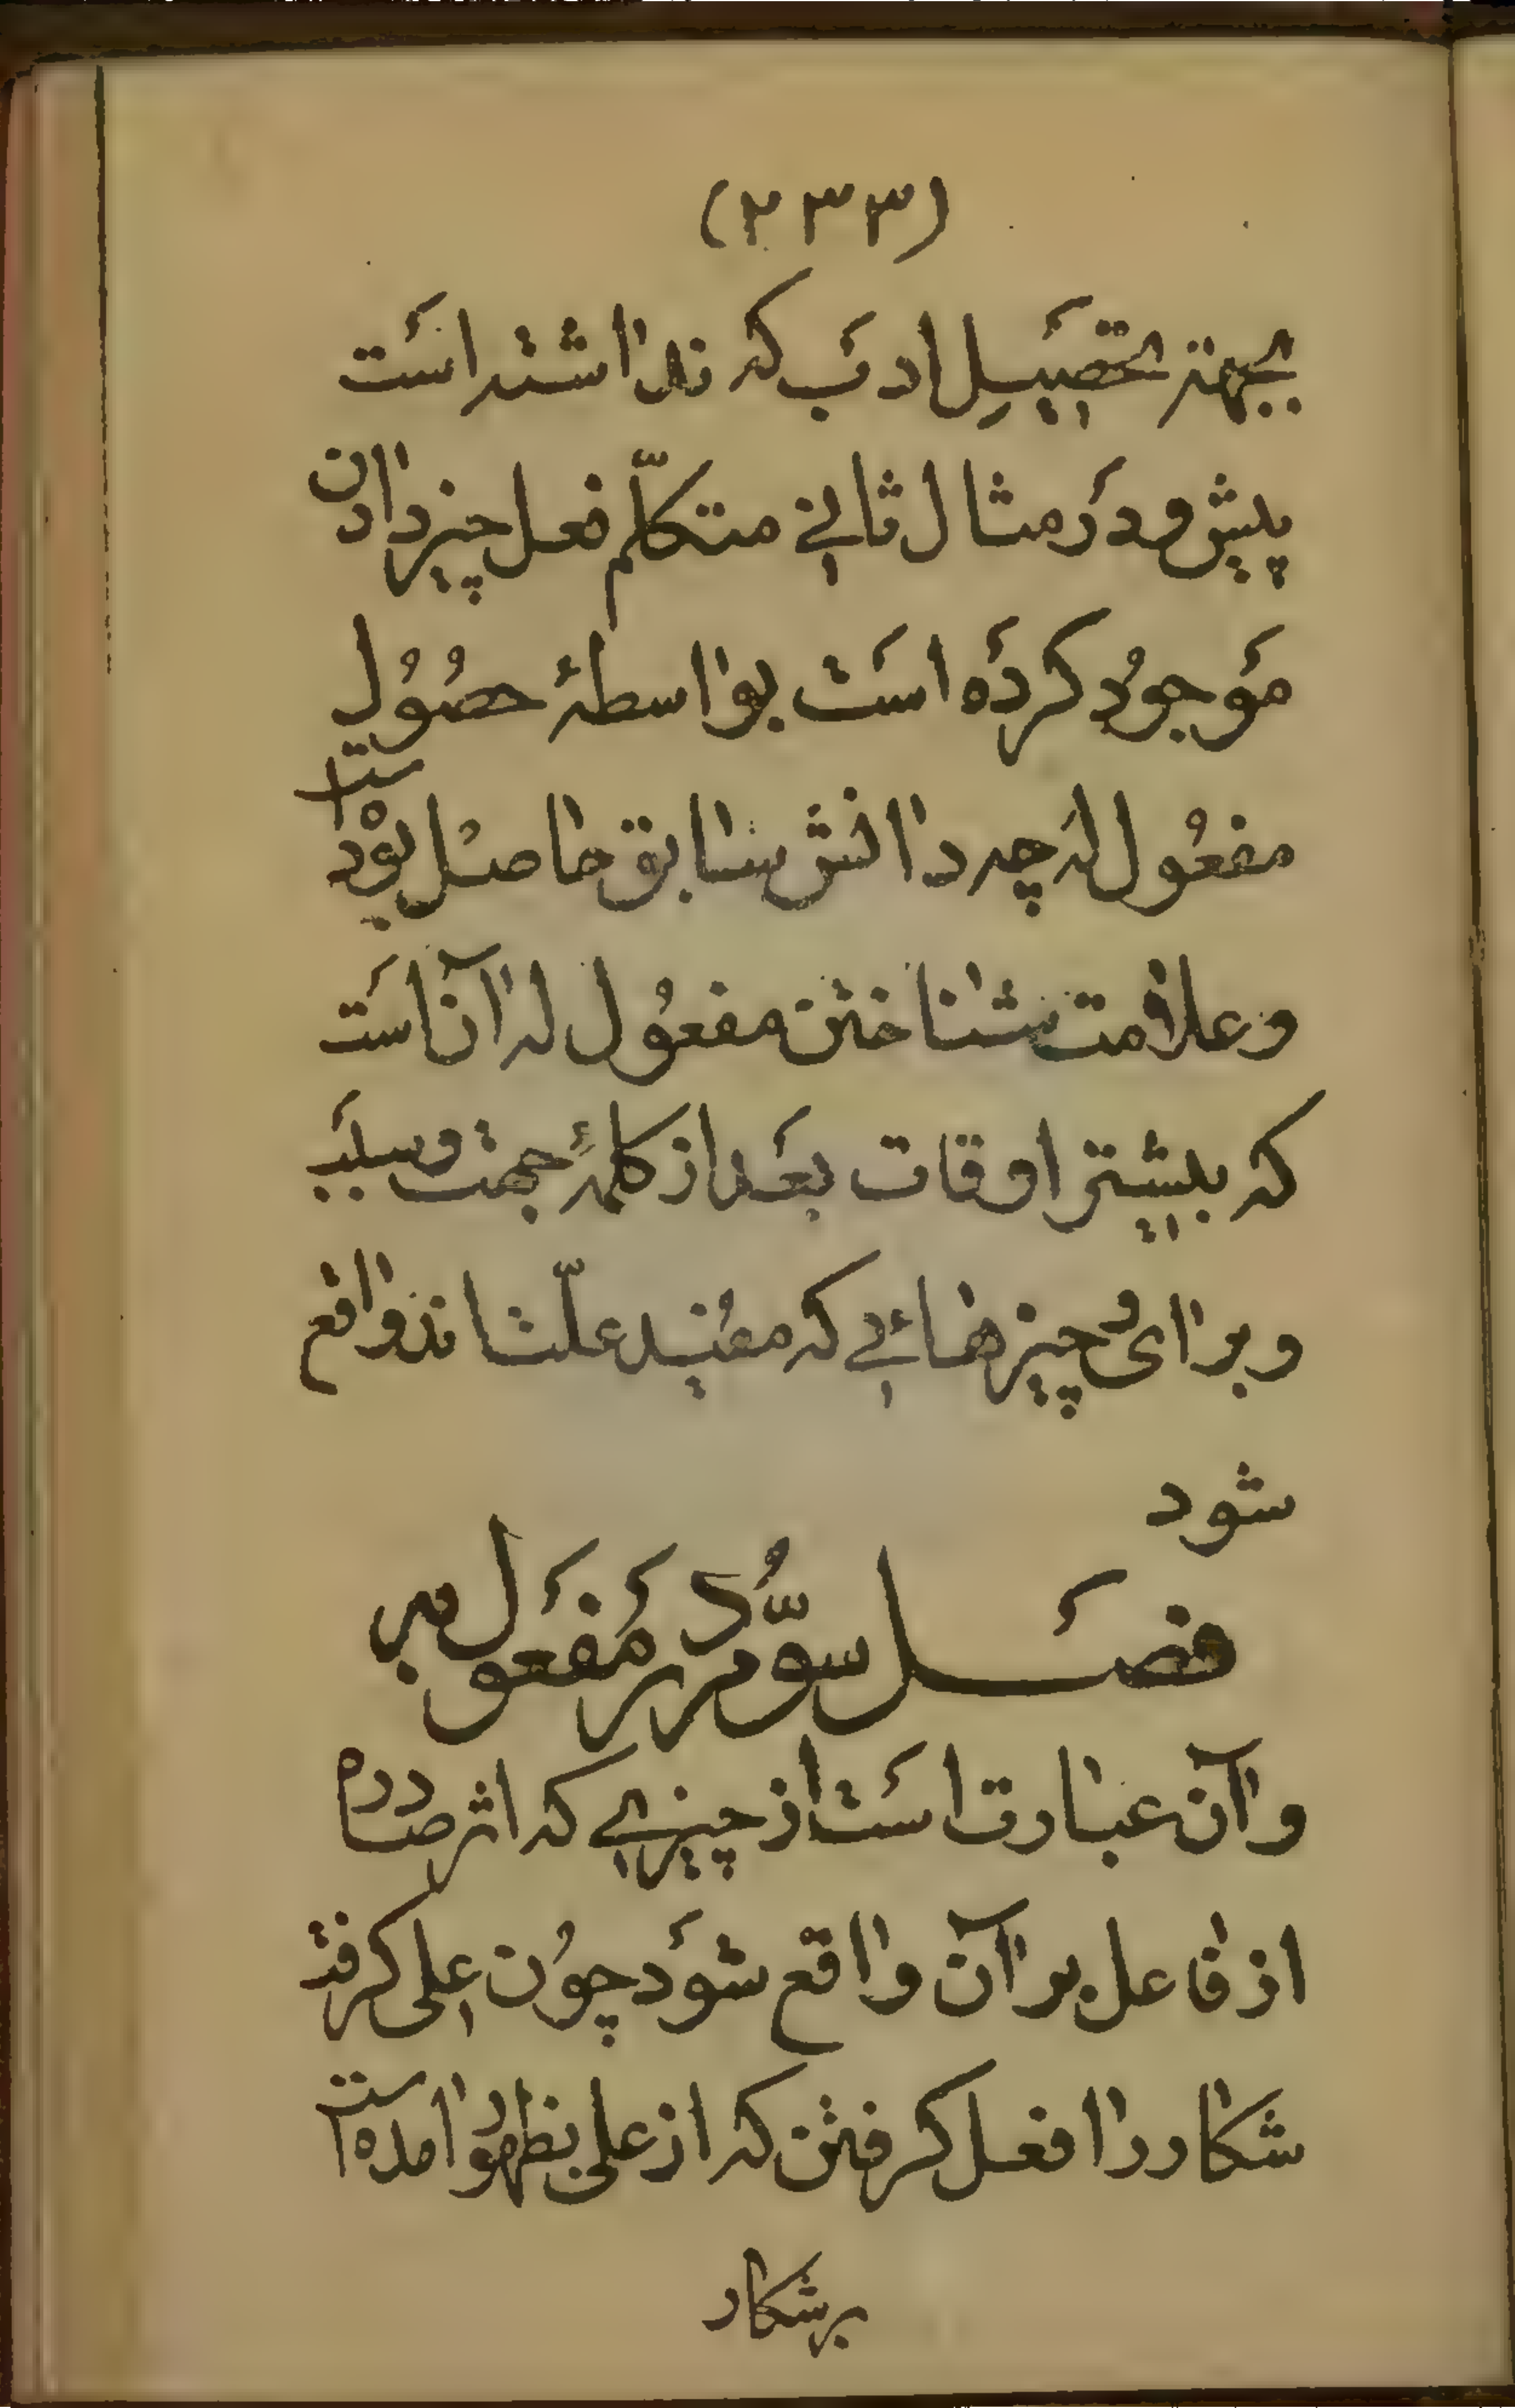 (۲۳۳)
بجهتهٔ تحصیل ادب که نداشته است
پیش و در مثال ثانی متکلّم فعل چیز دادن
موجود کرده است بواسطهٔ حصول
مفعول له چه دانش سابق حاصل بوده است
و علامت شناختن مفعول له آن است
که بیشتر اوقات بعد از کلمهٔ جهت و سبب
و برای و چیزهائی که مفید علّت‌اند واقع
شود
فصل سوّم در مفعول به
و آن عبارت است از چیزی که اثر صادره
از فاعل بر آن واقع شود چون علی گرفت
شکار را فعل گرفتن که از علی بظهور آمده است
بر شکار